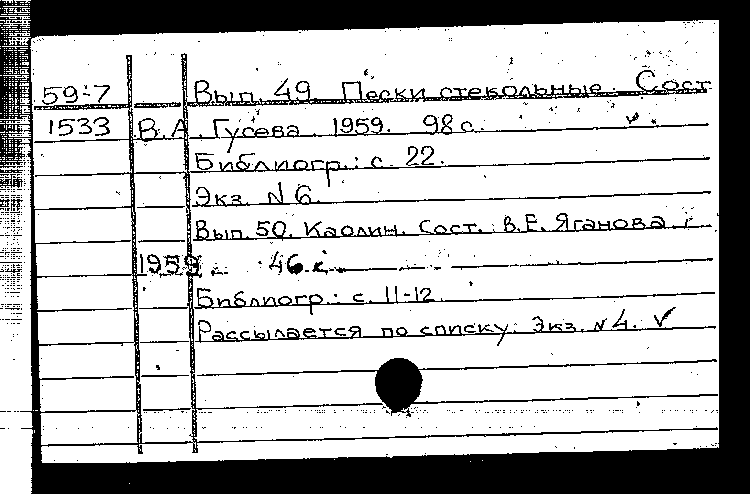 59:7 Вып. 49. Пески стекольные. Сост
1533 В.А. Гусева. 1959. 98 с.
Библиогр.: с. 22.
Экз. N 6.
Вып. 50. Каолин. Сост. В.Е. Яганова.
1959. 46 с.
Библиогр.: с. 11-12.
Рассылается по списку. Экз. N 4. ✓